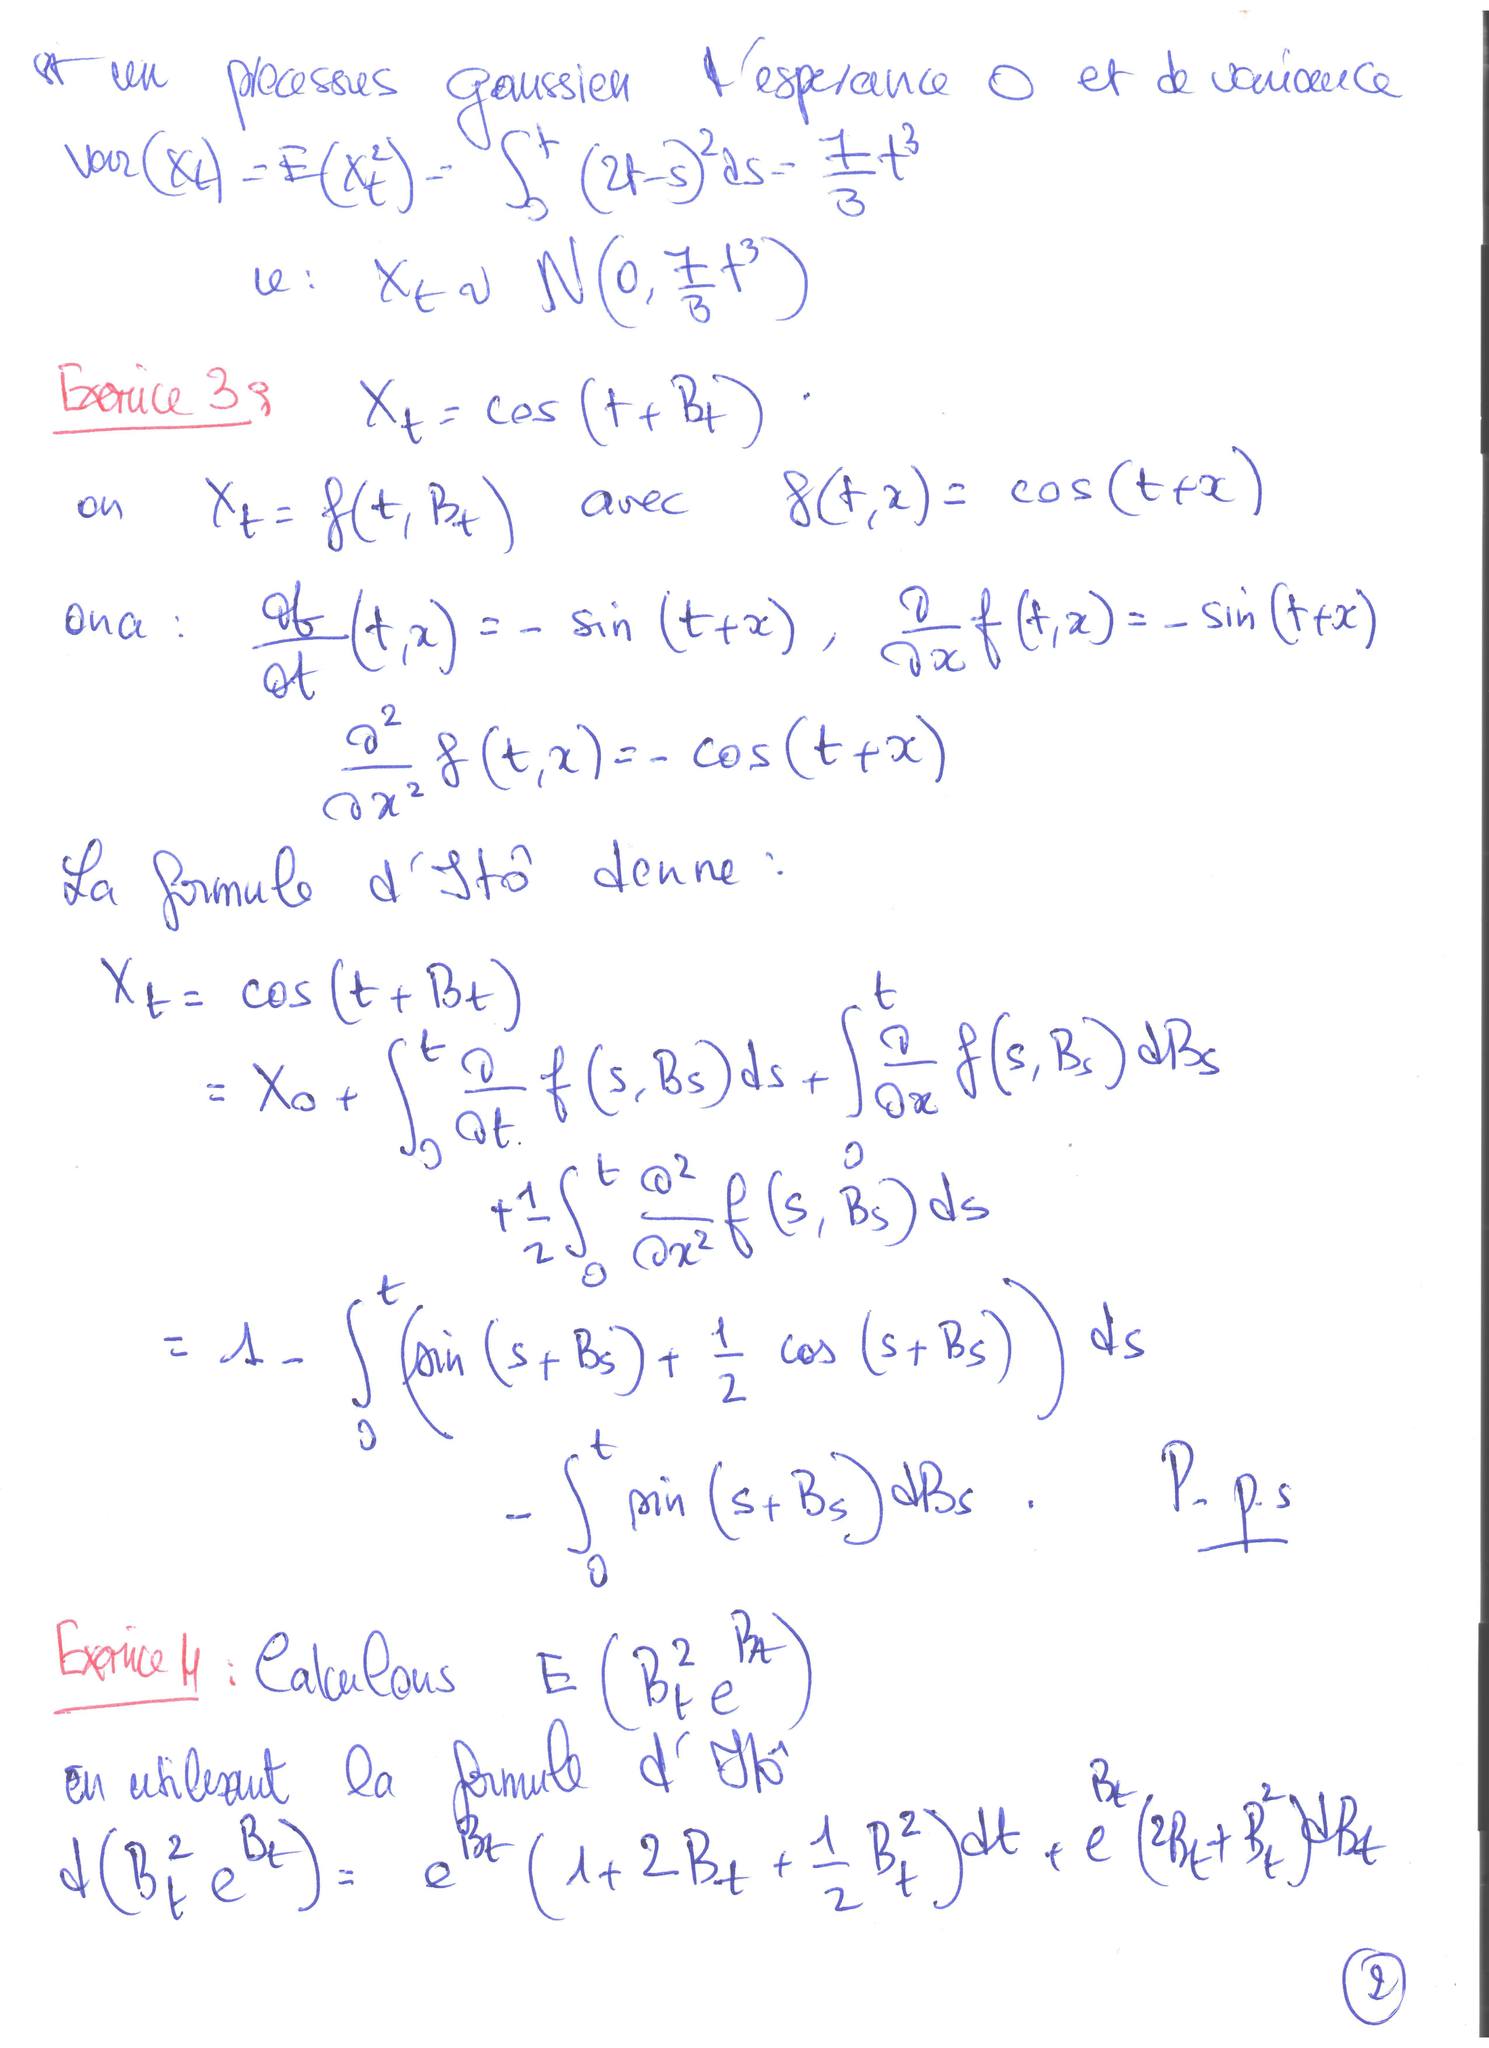 est un processus gaussien d'esperance 0 et de variance
Var(X_t) = E(X_t^2) = ∫_0^t (2t-s)^2 ds = 7/3 t^3
ie : X_t ~ N(0, 7/3 t^3)
Exercice 3 : X_t = cos(t + B_t).
on X_t = f(t, B_t) avec f(t,x) = cos(t+x)
on a : ∂f/∂t (t,x) = - sin(t+x), ∂/∂x f(t,x) = - sin(t+x)
∂²/∂x² f(t,x) = - cos(t+x)
La formule d'Itô donne :
X_t = cos(t + B_t)
= X_0 + ∫_0^t ∂/∂t f(s, B_s) ds + ∫_0^t ∂/∂x f(s, B_s) dB_s
+ 1/2 ∫_0^t ∂²/∂x² f(s, B_s) ds
= 1 - ∫_0^t (sin(s + B_s) + 1/2 cos(s + B_s)) ds
- ∫_0^t sin(s + B_s) dB_s . P-p.s
Exercice 4 : Calculons E(B_t^2 e^{B_t})
en utilisant la formule d'Itô
d(B_t^2 e^{B_t}) = e^{B_t} (1 + 2B_t + 1/2 B_t^2) dt + e^{B_t} (2B_t + B_t^2) dB_t
2